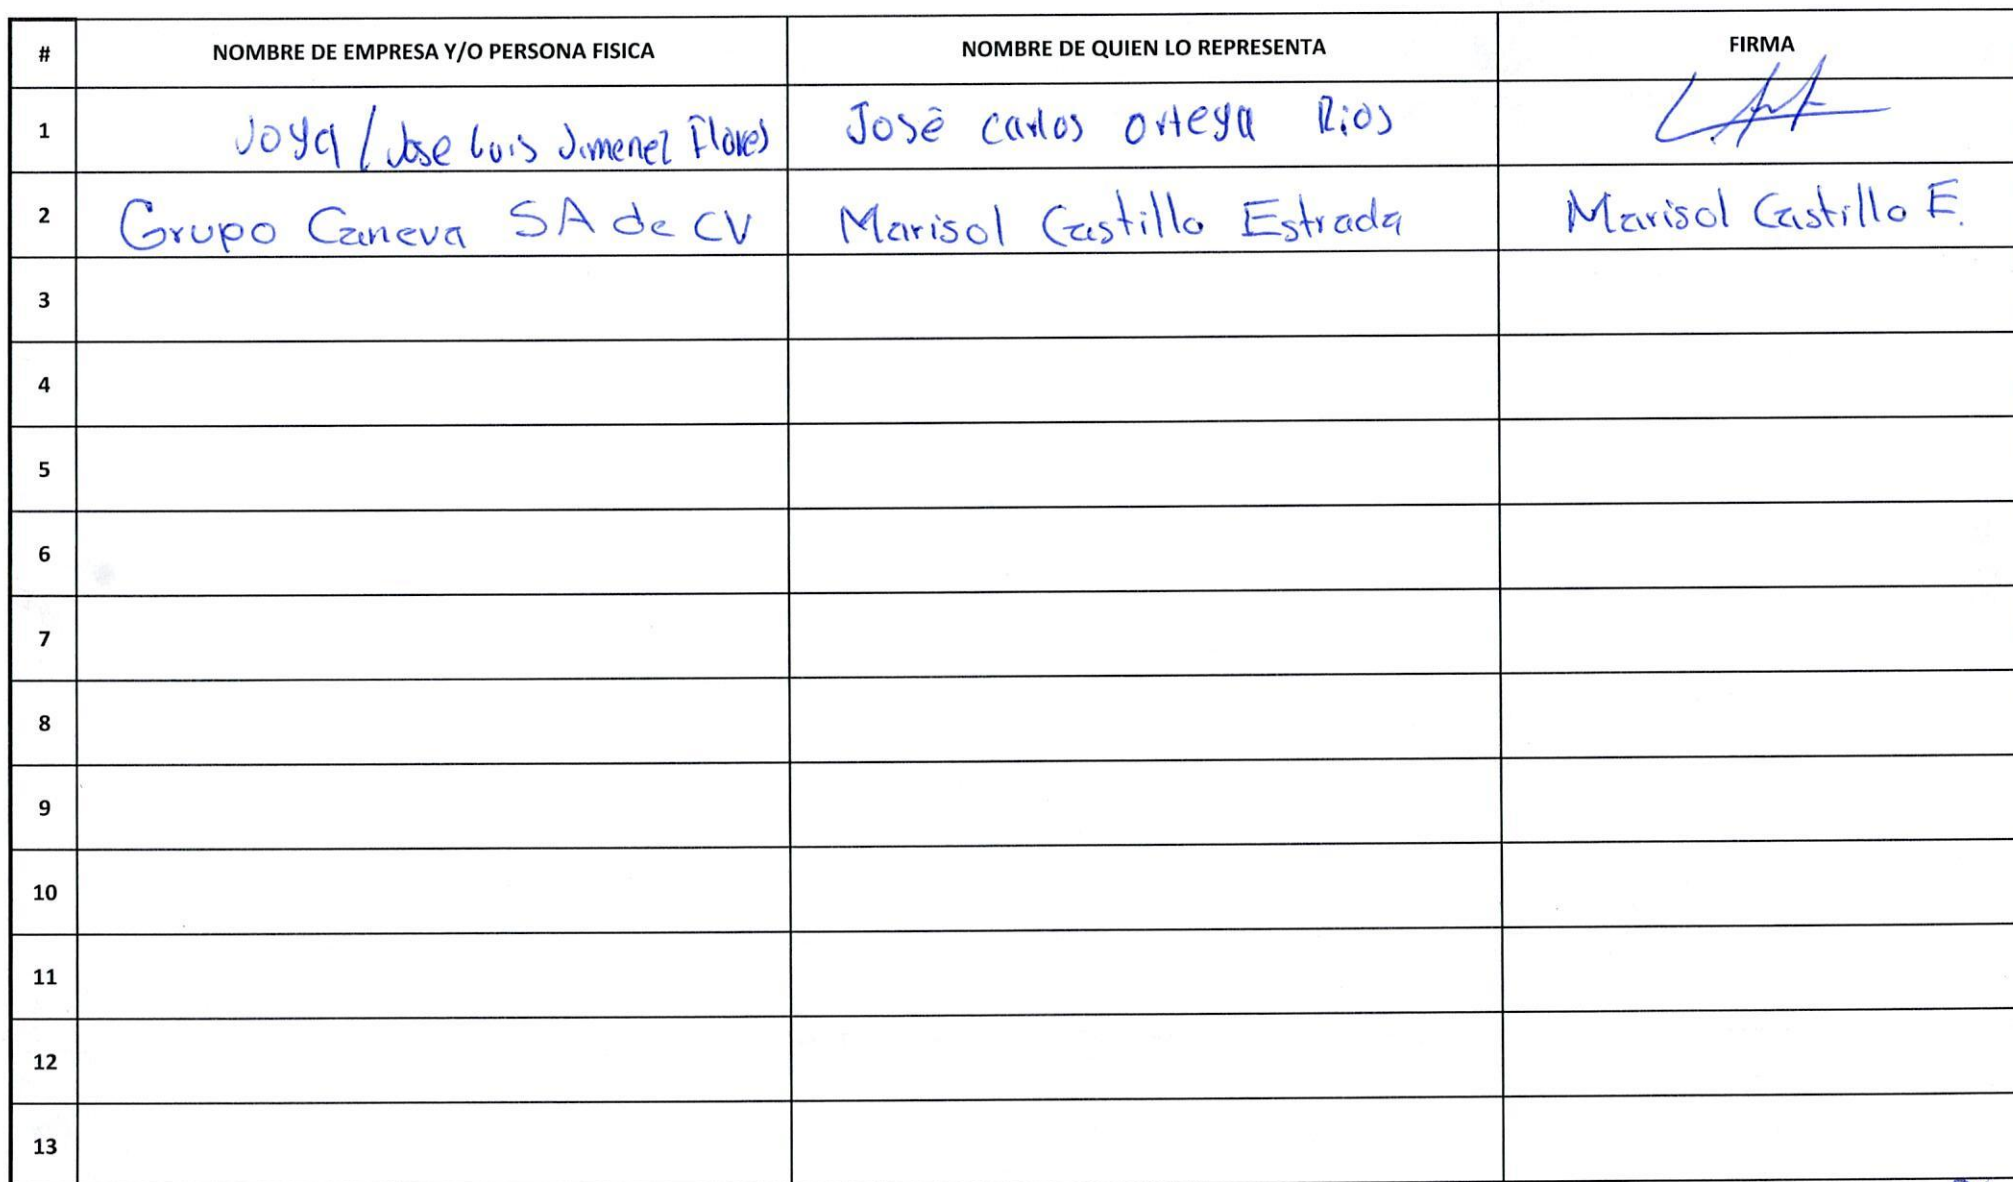 # NOMBRE DE EMPRESA Y/O PERSONA FISICA NOMBRE DE QUIEN LO REPRESENTA FIRMA
1 Joya / Jose Luis Jimenez Flores José Carlos Ortega Rios
2 Grupo Caneva SA de CV Marisol Castillo Estrada Marisol Castillo E.
3
4
5
6
7
8
9
10
11
12
13